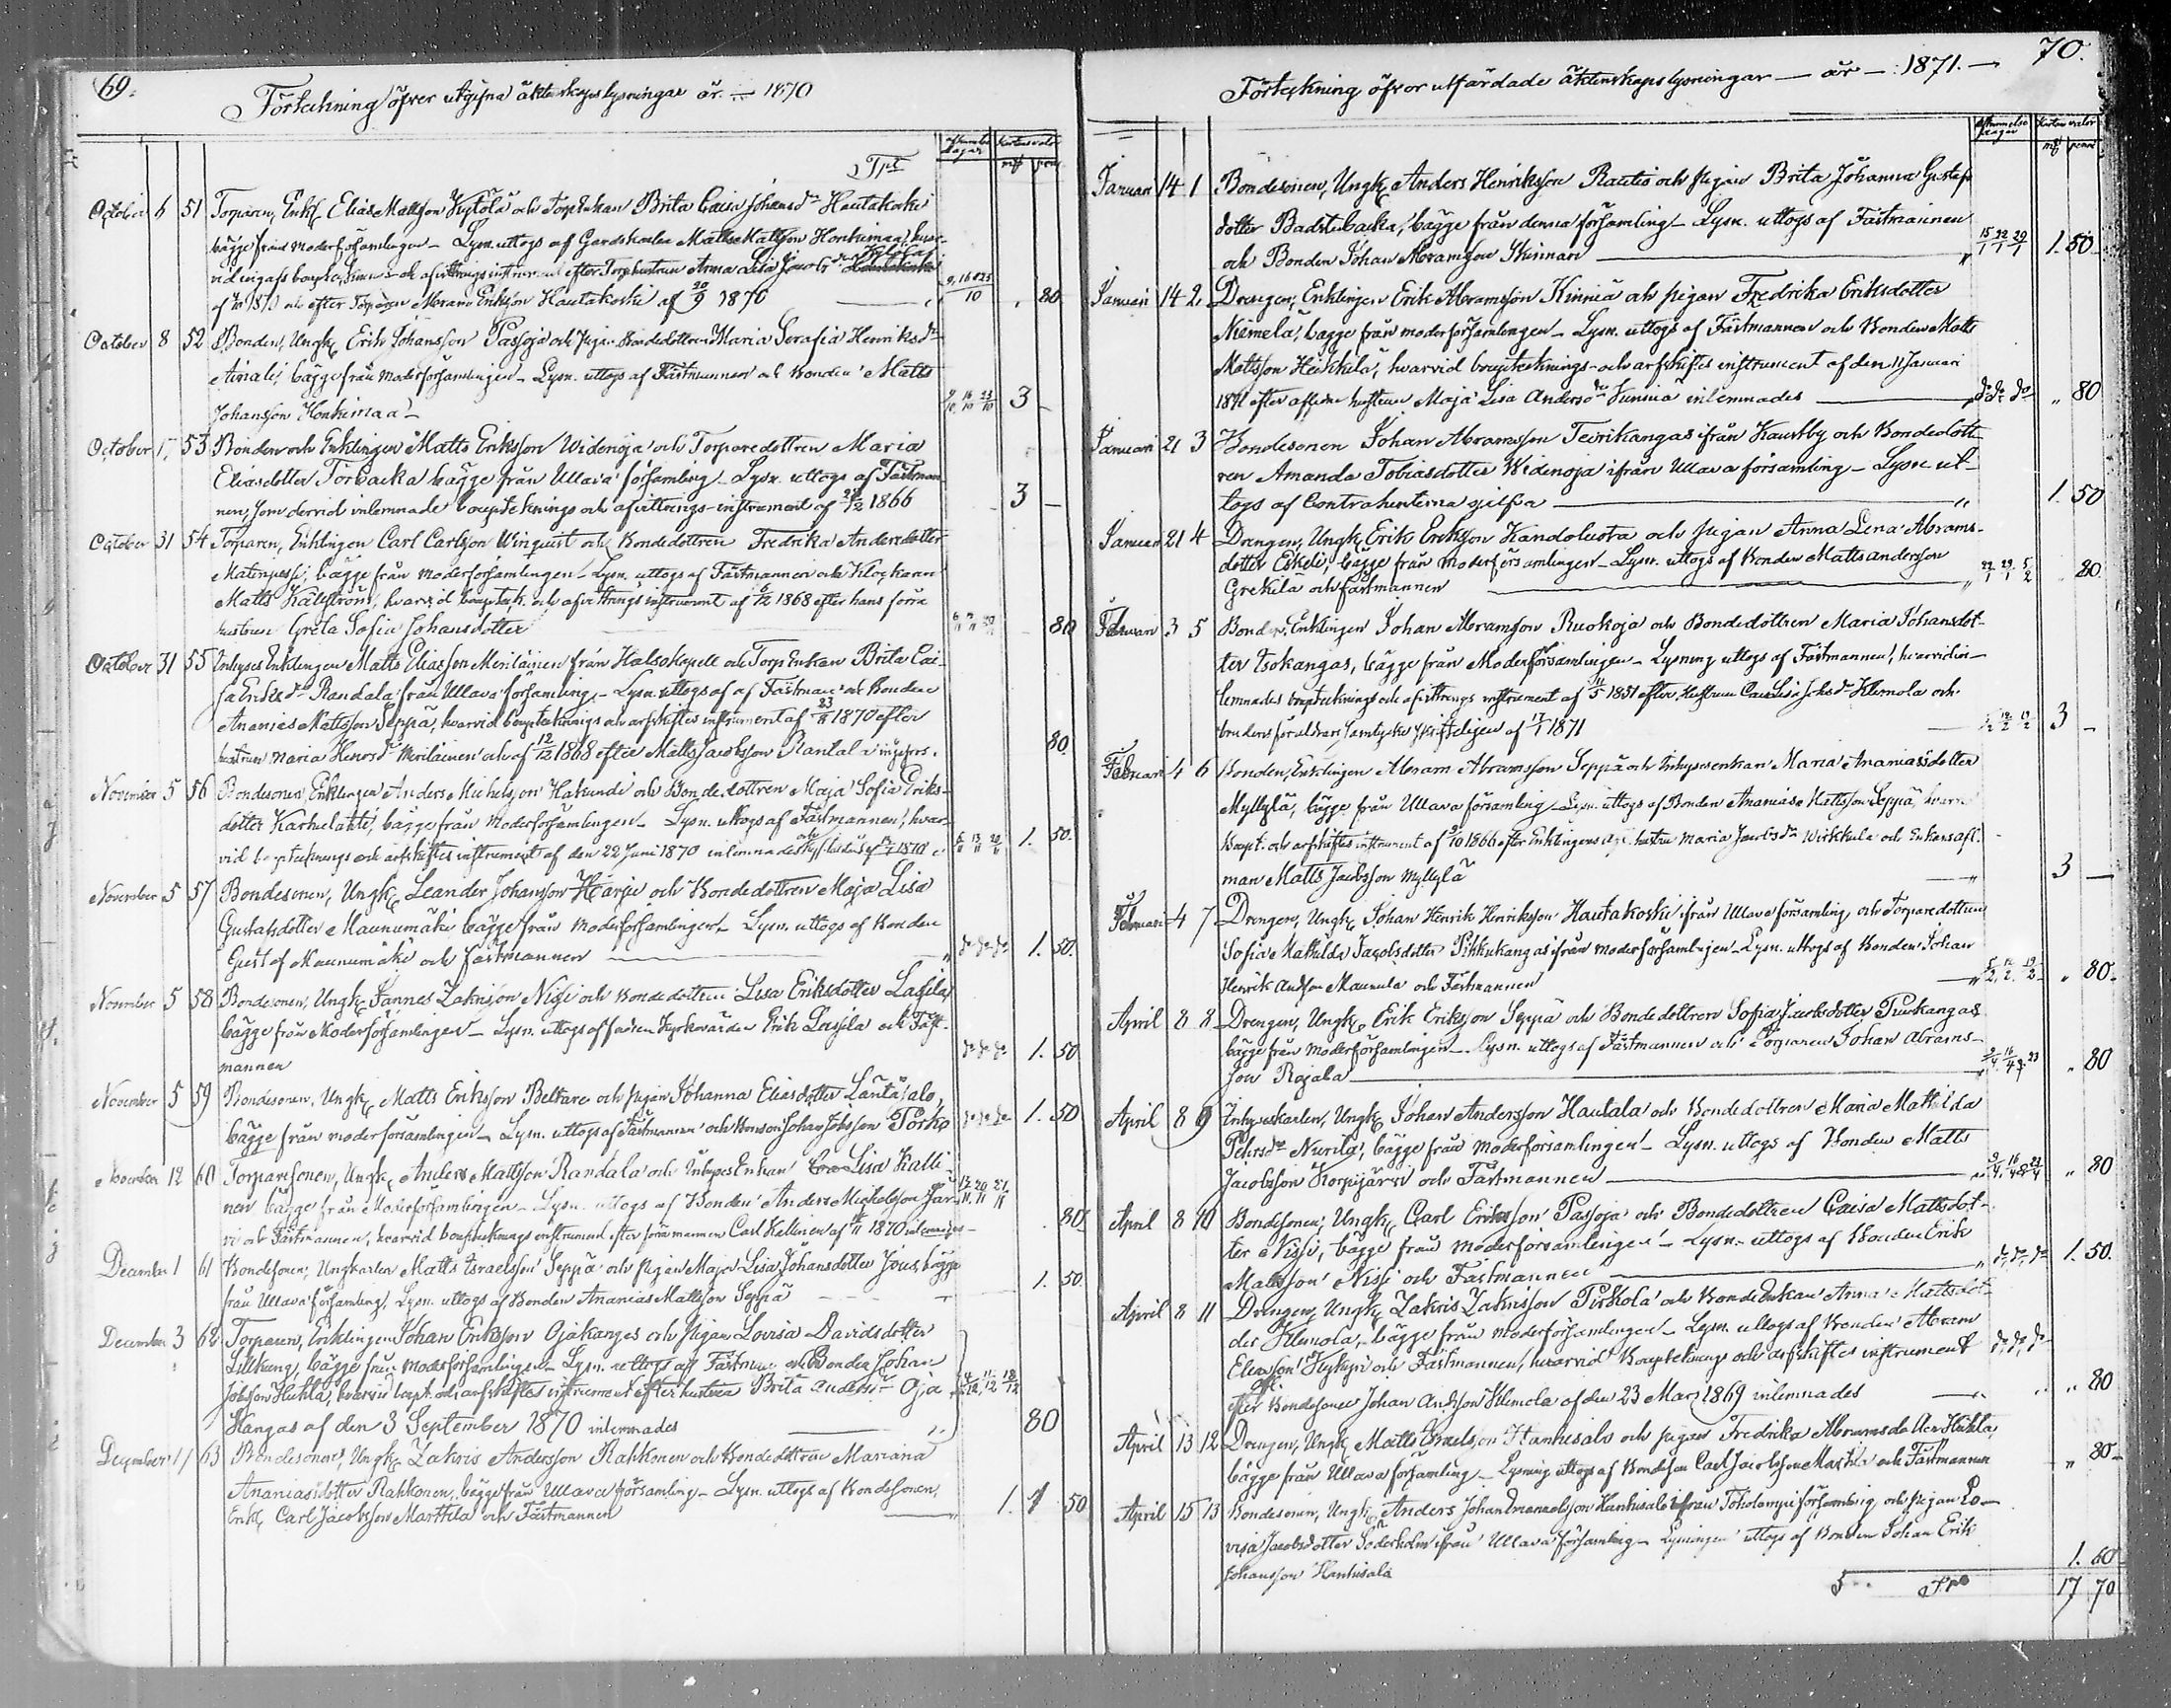 69.
Förteckning öfver utgifna äktenskapslysningar år. — 1870
Tpt
mk pen
October 6 51 Torparen, Enkl. Elias Mattsson Kytölä och Torp Enkan Brita Caisa Johansdr Hautakoski
bägge från moderförsamlingen — Lysn. uttogs af Gårdskarlen Matts Mattsson Honkimaa, hvar-
vid ingafs boupteckning och afvittrings instrument efter Torphustrun Anna Lisa Jacobsdr
af 1870 och efter Torparen Abram Eriksson Hautakoski af 20/9 1870 — 9, 16 o 23/10 „ 80
October 8 52 Bonden, Ungk. Erik Johansson Passoja och Pigan Bondedottren Maria Serafia Henriksdr
Ainali, bägge från moderförsamlingen — Lysn. uttogs af Fästmannen och Bonden Matts
Johansson Honkimaa — 9/10 16/10 23/10 3 —
October 17 53 Bonden och Enklingen Matts Eriksson Widenoja och Torparedottren Maria
Eliasdotter Torbacka bägge från Ullava församling — Lysn. uttogs af Fästman-
nen, som dervid inlemnade bouptecknings och afvittrings-instrument af 1866 3 —
October 31 54 Torparen, Enklingen Carl Carlsson Winquist och Bondedottren Fredrika Andersdotter
Matinpessi, bägge från moderförsamlingen — Lysn. uttogs af Fästmannen och Klockaren
Matts Källström, hvarvid bouptek. och afvittrings instrument af 1868 efter hans förra
hustrun Greta Sofia Johansdotter 80
October 31 55 Inhyses Enklingen Matts Eliasson Meriläinen från Halso kapell och Torp Enkan Brita Cai-
sa Randala från Ullava församling — Lysn. uttogs af af Fästman och Bonden
Ananias Mattsson Seppä, hvarvid bouptecknings och arfskiftes instrument af 23/8 1870 efter
hustrun Maria Henrsdr Meriläinen och af 12/12 1868 efter Matts Jacobsson Rantala ingafvos. 80.
November 5 56 Bondesonen, Enklingen Anders Michelsson Hakunti och Bondedottren Maja Sofia Eriks-
dotter Karhulahti, bägge från moderförsamlingen — Lysn. uttogs af Fästmannen, hvar-
vid bouptecknings och arfskiftes instrument af den 22 Juni 1870 inlemnades 6/11 13/11 20/11 1. 50.
November 5 57 Bondesonen, Ungk. Leander Johansson Härju och Bondedottren Maja Lisa
Gustafsdotter Maunumäki bägge från moderförsamlingen — Lysn. uttogs af Bonden
Gustaf Maunumäki och fästmannen — do do do 1. 50.
November 5 58 Bondesonen, Ungk. Jannes Zakrisson Nissi och Bondedottren Lisa Eriksdotter Lassila,
bägge från Moderförsamlingen — Lysn. uttogs af fadren Kyrkovärden Erik Lassila och Fäst-
mannen do do do 1. 50
November 5 59 Bondesonen, Ungk. Matts Eriksson Beltare och pigan Johanna Eliasdotter Läntäsalo,
bägge från moderförsamlingen — Lysn. uttogs af Fästmannen och Bonden Johan Jobsson Torko do do do 1. 50
November 12 60 Torparesonen, Ungk. Anders Mattsson Randala och Inhyses Enkan Lisa Kalli-
nen bägge från Moderförsamlingen — Lysn. uttogs af Bonden Anders Mickelsson Jär-
vi och Fästmannen, hvarvid bouptecknings instrument efter förra mannen Carl Kallinen af 1870 inlemnades — 80
December 1 61 Bondesonen, Ungkarlen Matts Israelsson Seppä och pigan Maja Lisa Johansdotter Jous, bägge
från Ullava församling, Lysn. uttogs af Bonden Ananias Mattsson Seppä — 1. 50
December 3 62 Torparen, Enklingen Johan Eriksson Ojakangas och Pigan Lovisa Davidsdotter
Lillkung, bägge från moderförsamlingen — Lysn. uttogs af Fästman och Bonden Johan
Jobsson Huhta, hvarvid bopt. och arfskiftes instrument efter hustrun Brita Andersdr Oja- 4/12 11/12 18/12
kangas af den 3 September 1870 inlemnades — „ 80
December 17 63 Bondesonen, Ungk. Zakris Andersson Rahkonen och Bondedottren Mariana
Ananiasdotter Rahkonen, bägge från Ullava församling — Lysn. uttogs af Bondesonen,
Enkl. Carl Jacobsson Marttila och Fästmannen — 1. 50
70.
Förteckning öfver utfärdade äktenskapslysningar — år — 1871. —
mk penni
Januari 14 1 Bondesonen, Ungk. Anders Henriksson Rautio och pigan Brita Johanna Gustafs
dotter Badstubacka, bägge från denna församling — Lysn. uttogs af Fästmannen
och Bonden Johan Abramsson Skinnari — 15/1 22/1 29/1 1. 50
Januari 14 2. Drengen, Enklingen Erik Abramsson Kinniä och pigan Fredrika Eriksdotter
Niemelä, bägge från moderförsamlingen — Lysn. uttogs af Fästmannen och Bonden Matts
Mattsson Heikkilä, hvarvid bouptecknings- och arfskiftes instrument af den 11 Januari
1871 efter aflidne hustrun Maja Lisa Andersdr inlemnades — do do do „ 80
Januari 21 3 Bondesonen Johan Abramsson Teirikangas ifrån Kaustby och Bondedott-
ren Amanda Tobiasdotter Widenoja ifrån Ullava församling — Lysn. ut-
togs af Contrahenterna sjelfva — „ 1. 50
Januari 21 4 Drengen, Ungk. Erik Eriksson Kandoluota och pigan Anna Lena Abrams-
dotter Eskeli, bägge från moderförsamlingen — Lysn. uttogs af Bonden Matts andersson
Grekilä och fästmannen — 22/1 29/1 5/2 „ 80.
Februari 3 5 Bonden, Enklingen Johan Abramsson Ruokoja och Bondedottren Maria Johansdot-
ter Isokangas, bägge från Moderförsamlingen — Lysning uttogs af Fästmannen, hvarvid in-
lemnades bouptecknings och afvittrings instrument af 1851 efter Hustrun Caisa Lisa Johsdr Klemola och
brudens föräldrars samtycke skrifteligen af 1871 3 —
Februari 4 6 Bonden, Enklingen Abram Abramsson Seppä och Inhysesenkan Maria Ananiasdotter
Myllylä, bägge från Ullava församling — Lysn. uttogs af Bonden Ananias Mattsson Seppä, hvarv.
Boupt. och arfskiftes instrument af 1866 efter Enklingens hustru Maria Jacobsdr Wirkkala och Enkans afl.
man Matts Jacobsson Myllylä — „ 3 —
Februari 4 7 Drengen, Ungk. Johan Henrik Henriksson Hautakoski ifrån Ullava församling och Torparedottren
Sofia Mathilda Jacobsdotter Pihkukangas ifrån moderförsamlingen — Lysn. uttogs af Bonden Johan
Henrik Andsson Maunula och Fästmannen — 5/2. 12/2. 19/2 „ 80.
April 8 8 Drengen, Ungk. Erik Eriksson Seppä och Bondedottren Sofia Jacobsdotter Purkangas
bägge från Moderförsamlingen — Lysn. uttogs af Fästmannen och Torparen Johan Abrams-
son Rajala — „ 80
April 8 9 Inhyseskarlen, Ungk. Johan Andersson Hautala och Bondedottren Maria Mathilda
Pehrsdr Nurila, bägge från moderförsamlingen — Lysn. uttogs af Bonden Matts
Jacobsson Korpijärvi och Fästmannen — „ 80
April 8 10 Bondesonen, Ungk. Carl Eriksson Passoja och Bondedottren Caisa Mattsdot-
ter Nissi, bägge från moderförsamlingen — Lysn. uttogs af Bonden Erik
Mattsson Nissi och Fästmannen — do do do 1. 50.
April 8 11 Drengen, Ungk. Zakris Zakrisson Pirkola och BondeEnkan Anna Mattsdot-
der Klemola, bägge från moderförsamlingen — Lysn. uttogs af Bonden Abram
Eliasson Kykyri och Fästmannen, hvarvid Bouptecknings och arfskiftes instrument do do do
efter Bondesonen Johan Andsson Klemola af den 23 Mars 1869 inlemnades — „ 80
April 13 12 Drengen, Ungk. Matts Israelsson Hanhisalo och pigan Fredrika Abramsdotter Huhta,
bägge från Ullava församling — Lysning uttogs af Bondeson Carl Jacobsson Marttila och Fästmannen „ 80
April 15 13 Bondesonen, Ungk. Anders Johan Emanuelsson Hanhisalo ifrån Toholampi församling och pigan Lo-
visa Jacobsdotter Söderholm ifrån Ullava församling — Lysningen uttogs af Bonden Johan Erik
Johansson Hanhisalo 1. 60
17 70